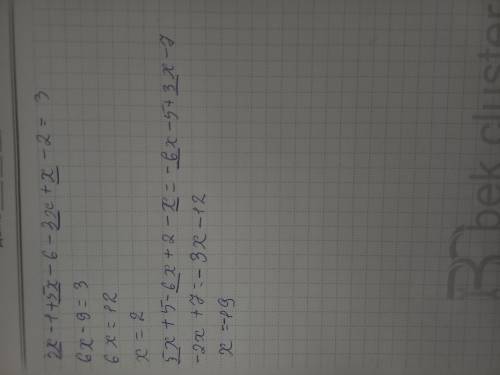 3x - 1 + 5x - 6 - 3x + x - 2 = 3
6x - 9 = 3
6x = 12
x = 2
5x + 5 - 6x + 2 - x = -6x - 5 + 3x - 7
-2x + 7 = -3x - 12
x = -19
bek cluster